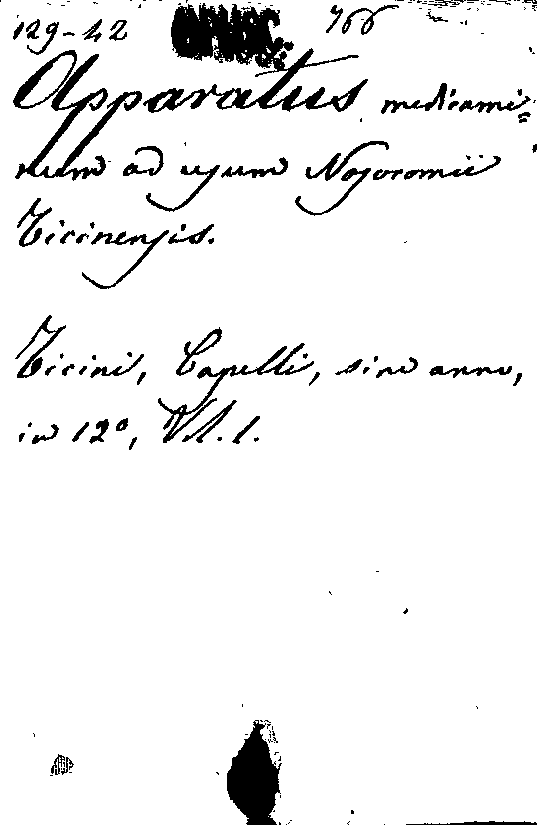 129-42 766
Apparatus medicami=
num ad usum Nosocomii
Ticinensis.
Ticini, Capelli, sine anno,
in 12º, Vol. 1.